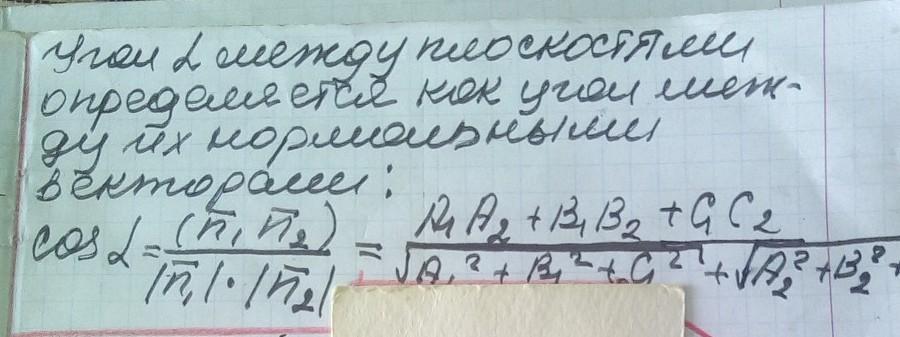 Угол α между плоскостями
определяется как угол меж-
ду их нормальными
векторами:
cos α = (n̄₁ n̄₂) / |n̄₁|·|n̄₂| = A₁A₂ + B₁B₂ + C₁C₂ / √A₁² + B₁² + C₁² + √A₂² + B₂² +